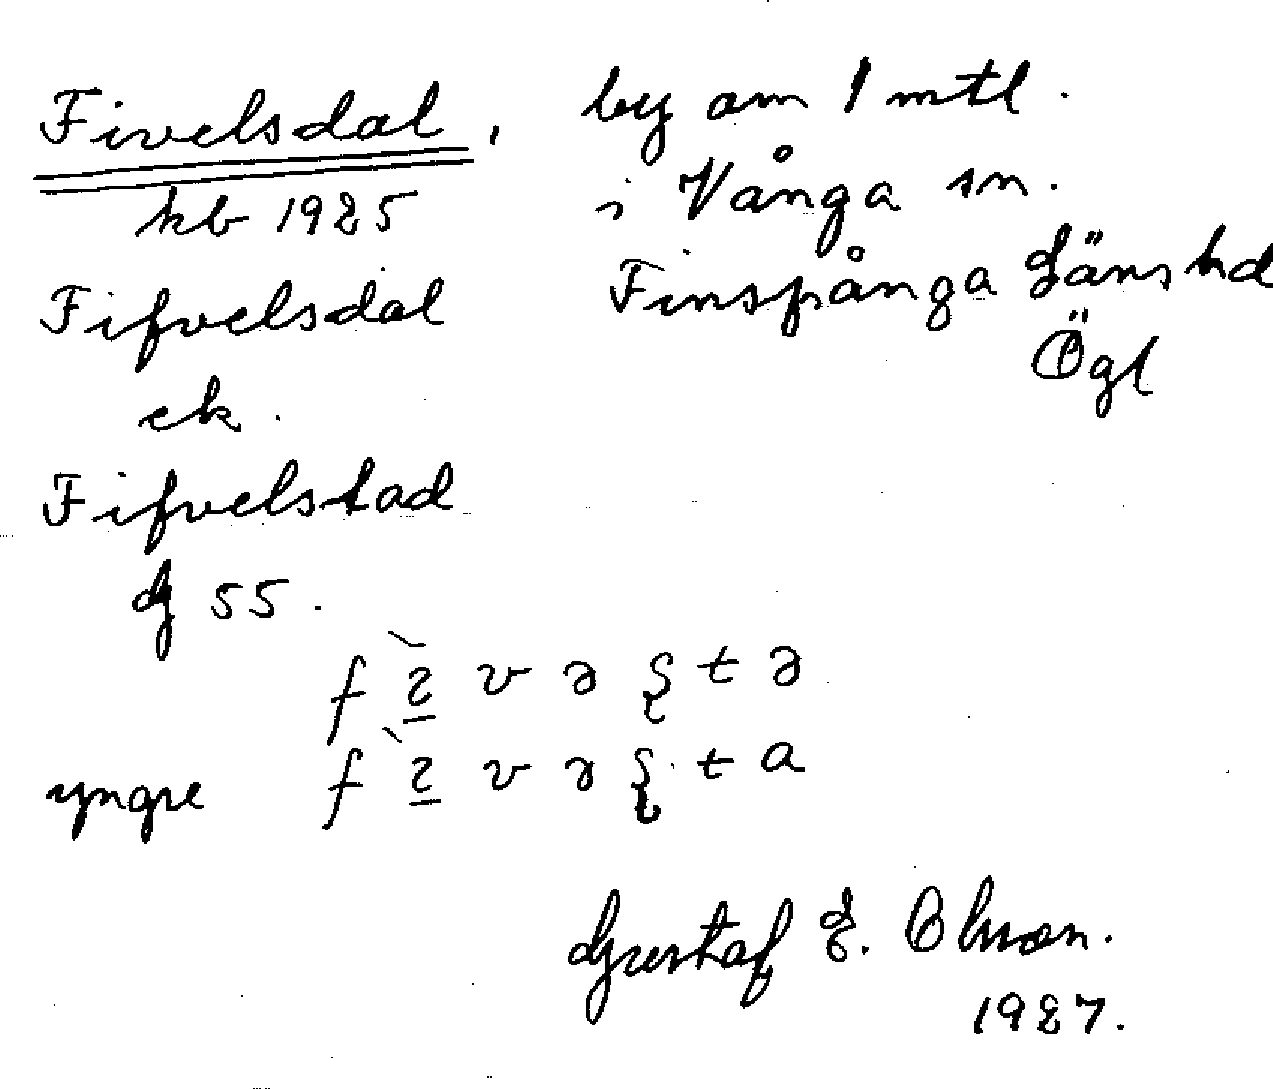 Fivelsdal, by om 1 mtl.
kb 1925 i Vånga sn.
Fifvelsdal Finspånga Länshd
Ögl
ek.
Fifvelstad
G 55.
yngre
Gustaf E. Olsson.
1927.